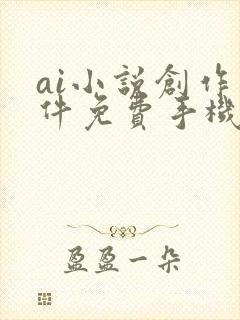 ai小説創作
件免費手機
盈盈一朵